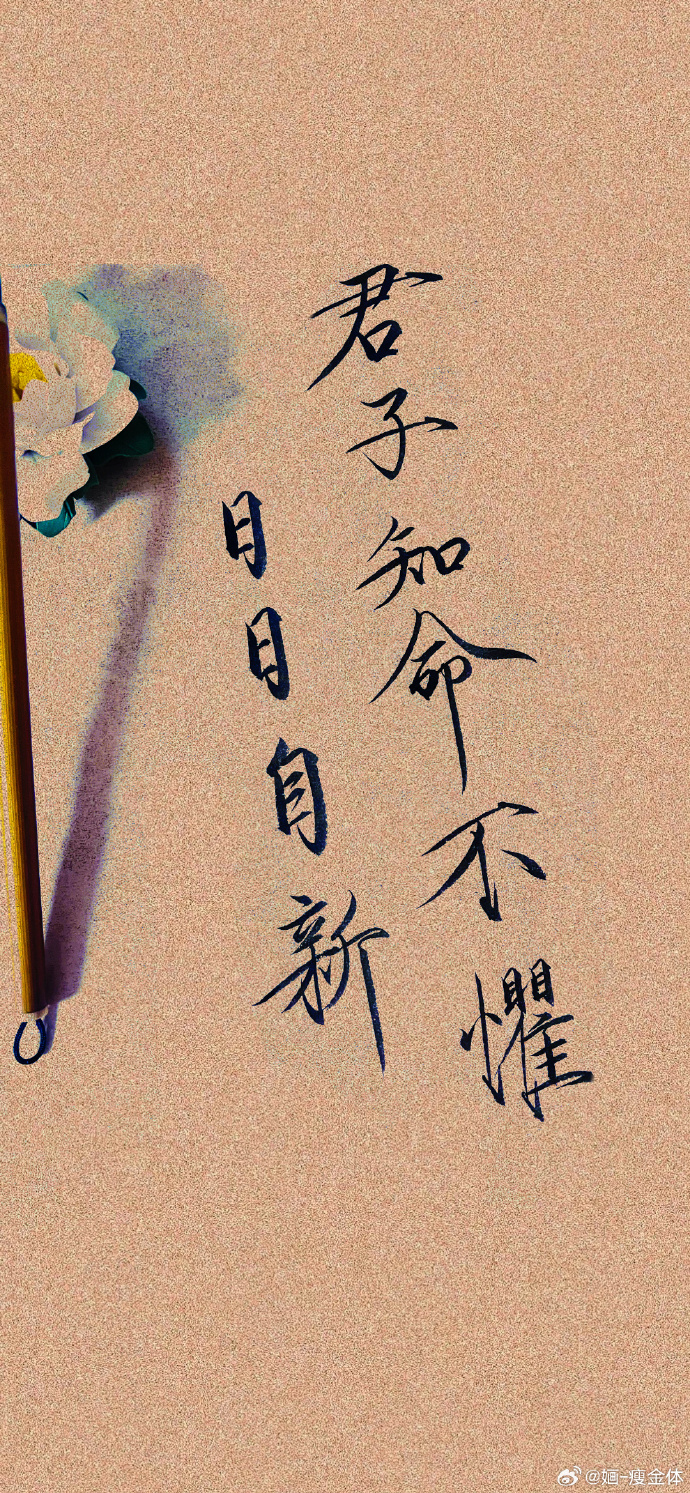 君子知命不懼
日日自新
@婳-瘦金体